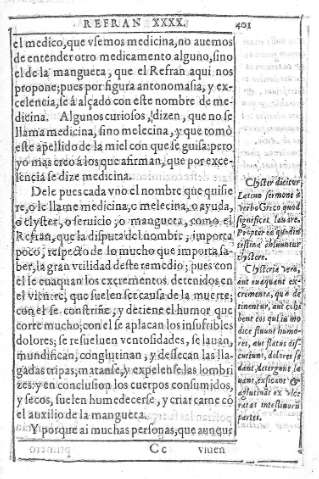 REFRAN XXXX.
401
el medico, que vsemos medicina, no auemos
de entender otro medicamento alguno, sino
el de la mangueta, que el Refran aqui nos
propone; pues por figura antonomasia, y ex-
celencia, se à alçado con este nombre de me-
dicina. Algunos curiosos, dizen, que no se
llama medicina, sino melecina, y que tomò
este apellido de la miel con que se guisa: pero
yo mas creo á los que afirman, que por exce-
sencia se dize medicina.
Dele pues cada vno el nombre que quisie
re, o le llame medicina, o melecina, o ayuda,
o clyster, o seruicio, o mangueta, como el
Refran, que la disputa del nombre, importa
poco, respecto de lo mucho que importa sa-
ber, la gran vtilidad deste remedio; pues con
el se euaquan los excrementos detenidos en
el vientre, que suelen ser causa de la muerte;
con el se constriñe, y detiene el humor que
corre mucho; con el se aplacan los insufribles
dolores; se resueluen ventosidades, se lauan,
mundifican, conglutinan, y dessecan las lla-
gadas tripas; matanse, y expelense las lombri
zes: y en conclusion los cuerpos consumidos,
y secos, suelen humedecerse, y criar carne có
el auxilio de la mangueta.
Y porque ai muchas personas, que aunque
Cc
vinen
Clyster dicitur
Latino sermone à
verbo Greco quod
significat lauare.
Propter ea quòd in
testina colluuntur
clystere.
Clysteria vero,
aut euaquant ex-
crementa, qua de
tinentur, aut cohi
bent eos qui im mo
dice fluunt humo-
res, aut flatus dis-
cutiunt, dolores se
dant, detergunt la
uant, exsicant &
aglutinant ex vlce
ratas intestinorum
partes.